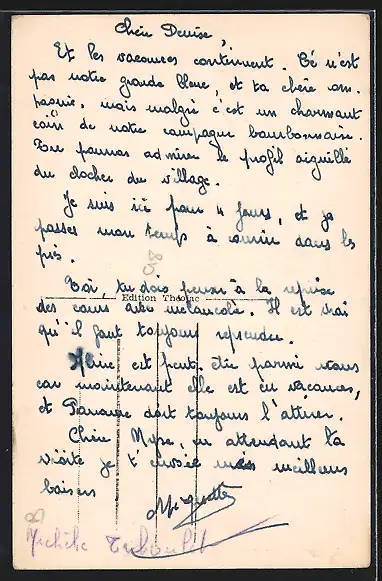 Chère Denise,
Et les vacances continuent. Cé n'est
pas notre grande bleue, et ta chère com-
pagnie, mais malgré c'est un charmant
coin de notre campagne bourbonnaise.
Tu pourras admirer le profil aiguillé
du clocher du village.
Je suis ici pour 4 jours, et je
passes mon temps à courir dans les
prés.
Toi, tu dois penser à la reprise
Edition Théojac
des cours avec mélancolie. Il est vrai
qu'il faut toujours reprendre.
est peut-être parmi vous
car maintenant elle est en vacances,
et Paname doit toujours l'attirer.
Chère en attendant ta
visite je t'envoie mes meilleurs
baisers
Michèle